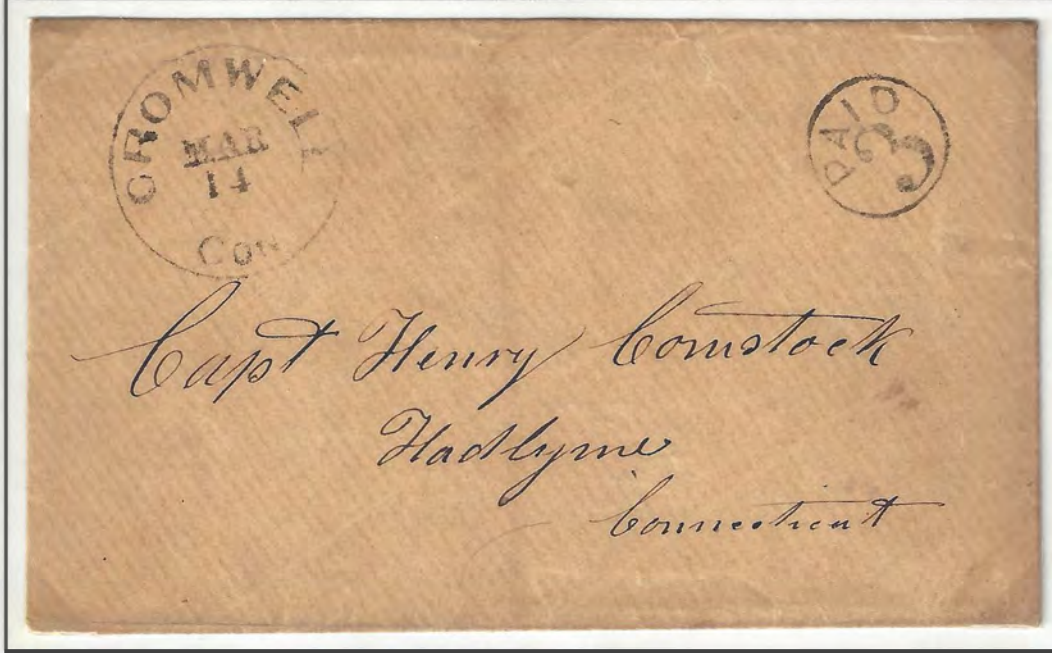 CROMWELL
MAR
14
Con
PAID
3
Capt Henry Comstock
Hadlyme
Connecticut